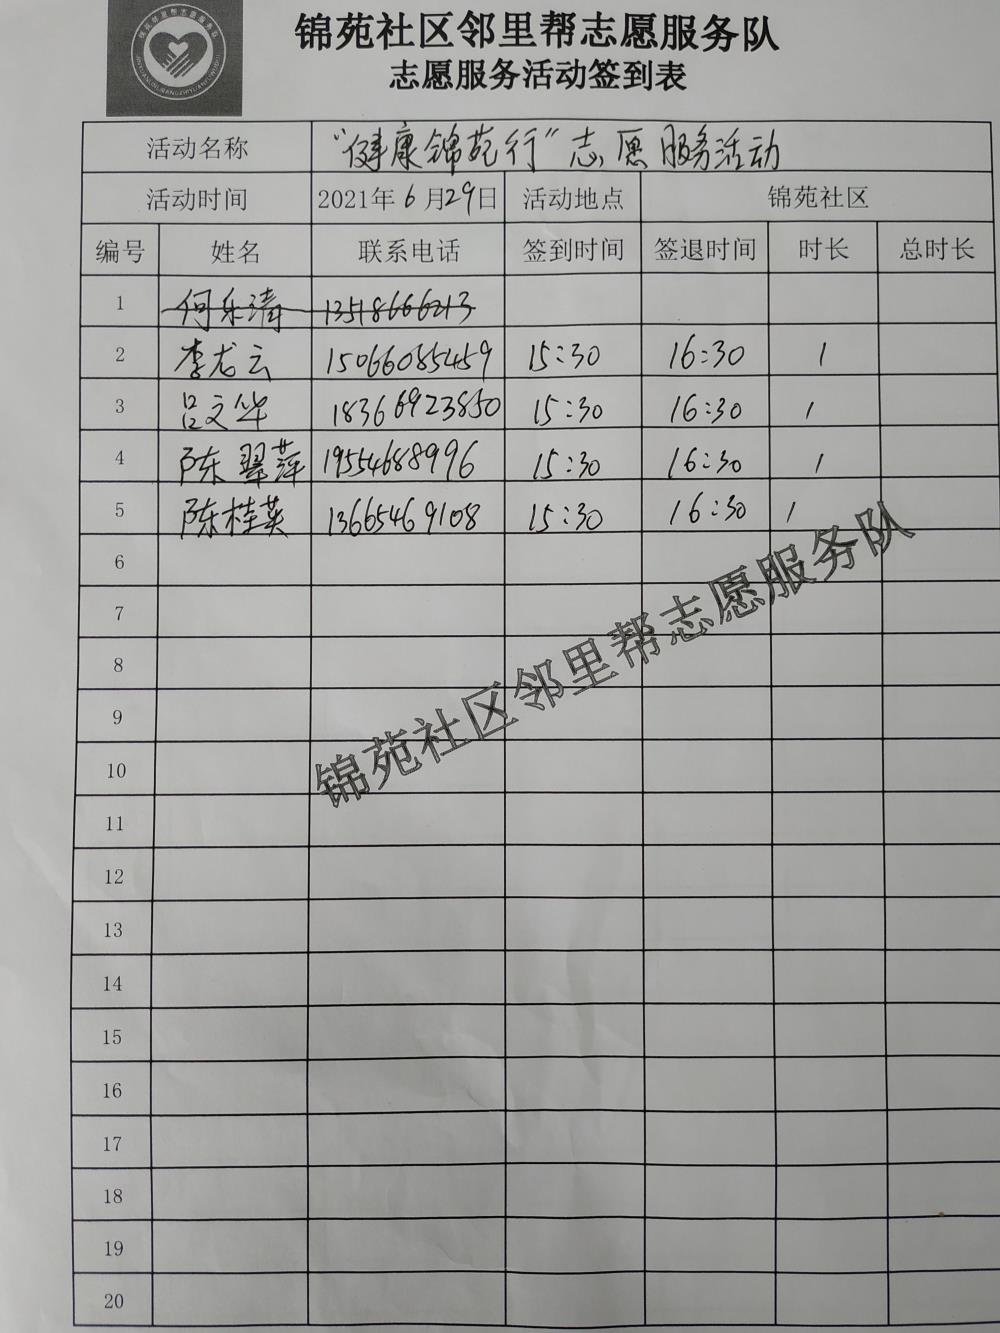 锦苑社区邻里帮志愿服务队
志愿服务活动签到表
活动名称 "健康锦苑行"志愿服务活动
活动时间 2021年6月29日 活动地点 锦苑社区
编号 姓名 联系电话 签到时间 签退时间 时长 总时长
1 何乐清 13518666213
2 李龙云 15066085459 15:30 16:30 1
3 吕文华 18366923850 15:30 16:30 1
4 陈翠萍 19554688996 15:30 16:30 1
5 陈桂英 13665469108 15:30 16:30 1
6
7
8
9
10
11
12
13
14
15
16
17
18
19
20
锦苑社区邻里帮志愿服务队